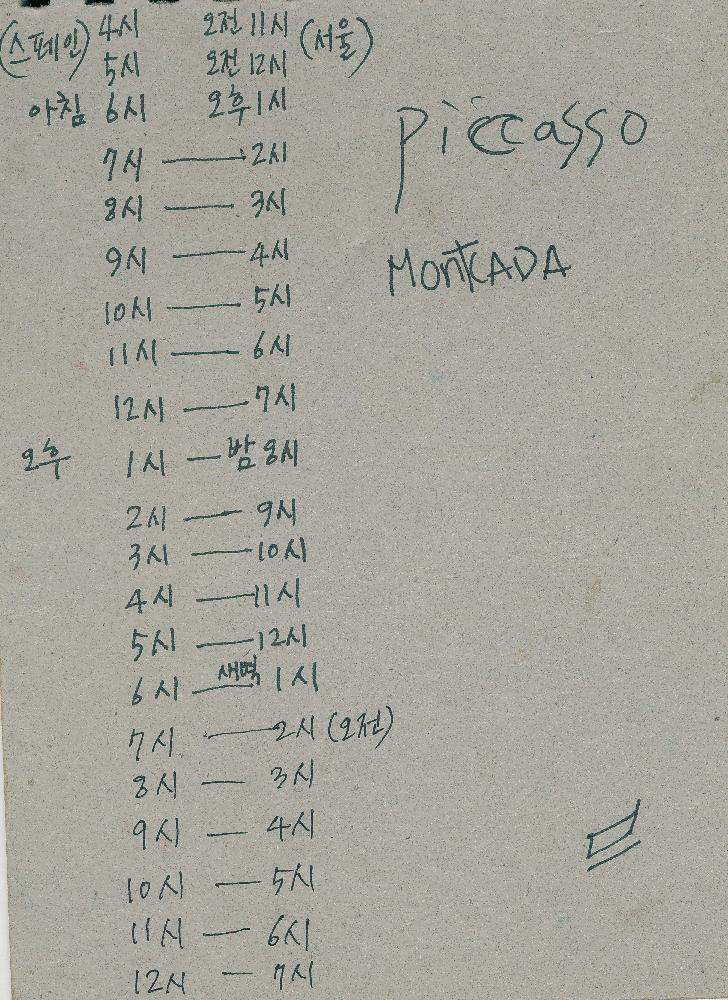 (스페인) 4시 오전 11시 (서울)
5시 오전 12시
아침 6시 오후 1시
7시 — 2시
8시 — 3시
9시 — 4시
10시 — 5시
11시 — 6시
12시 — 7시
오후 1시 — 밤 8시
2시 — 9시
3시 — 10시
4시 — 11시
5시 — 12시
6시 — 새벽 1시
7시 — 2시 (오전)
8시 — 3시
9시 — 4시
10시 — 5시
11시 — 6시
12시 — 7시
Piccasso
MontcADA